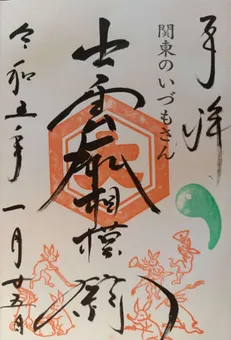 奉拝
関東のいづもさん
出雲大社相模分祠
令和五年一月廿五日